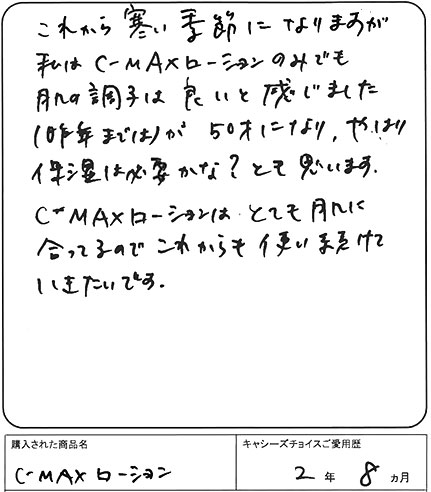 これから寒い季節になりますが
私はC-MAXローションのみでも
肌の調子は良いと感じました
(昨年までは)が 50才になり、やはり
保湿は必要かな?とも思います。
C-MAXローションは とても肌に
合ってるので これからも使い続けて
いきたいです。
購入された商品名
キャシーズチョイスご愛用歴
C-MAXローション
2年 8ヵ月